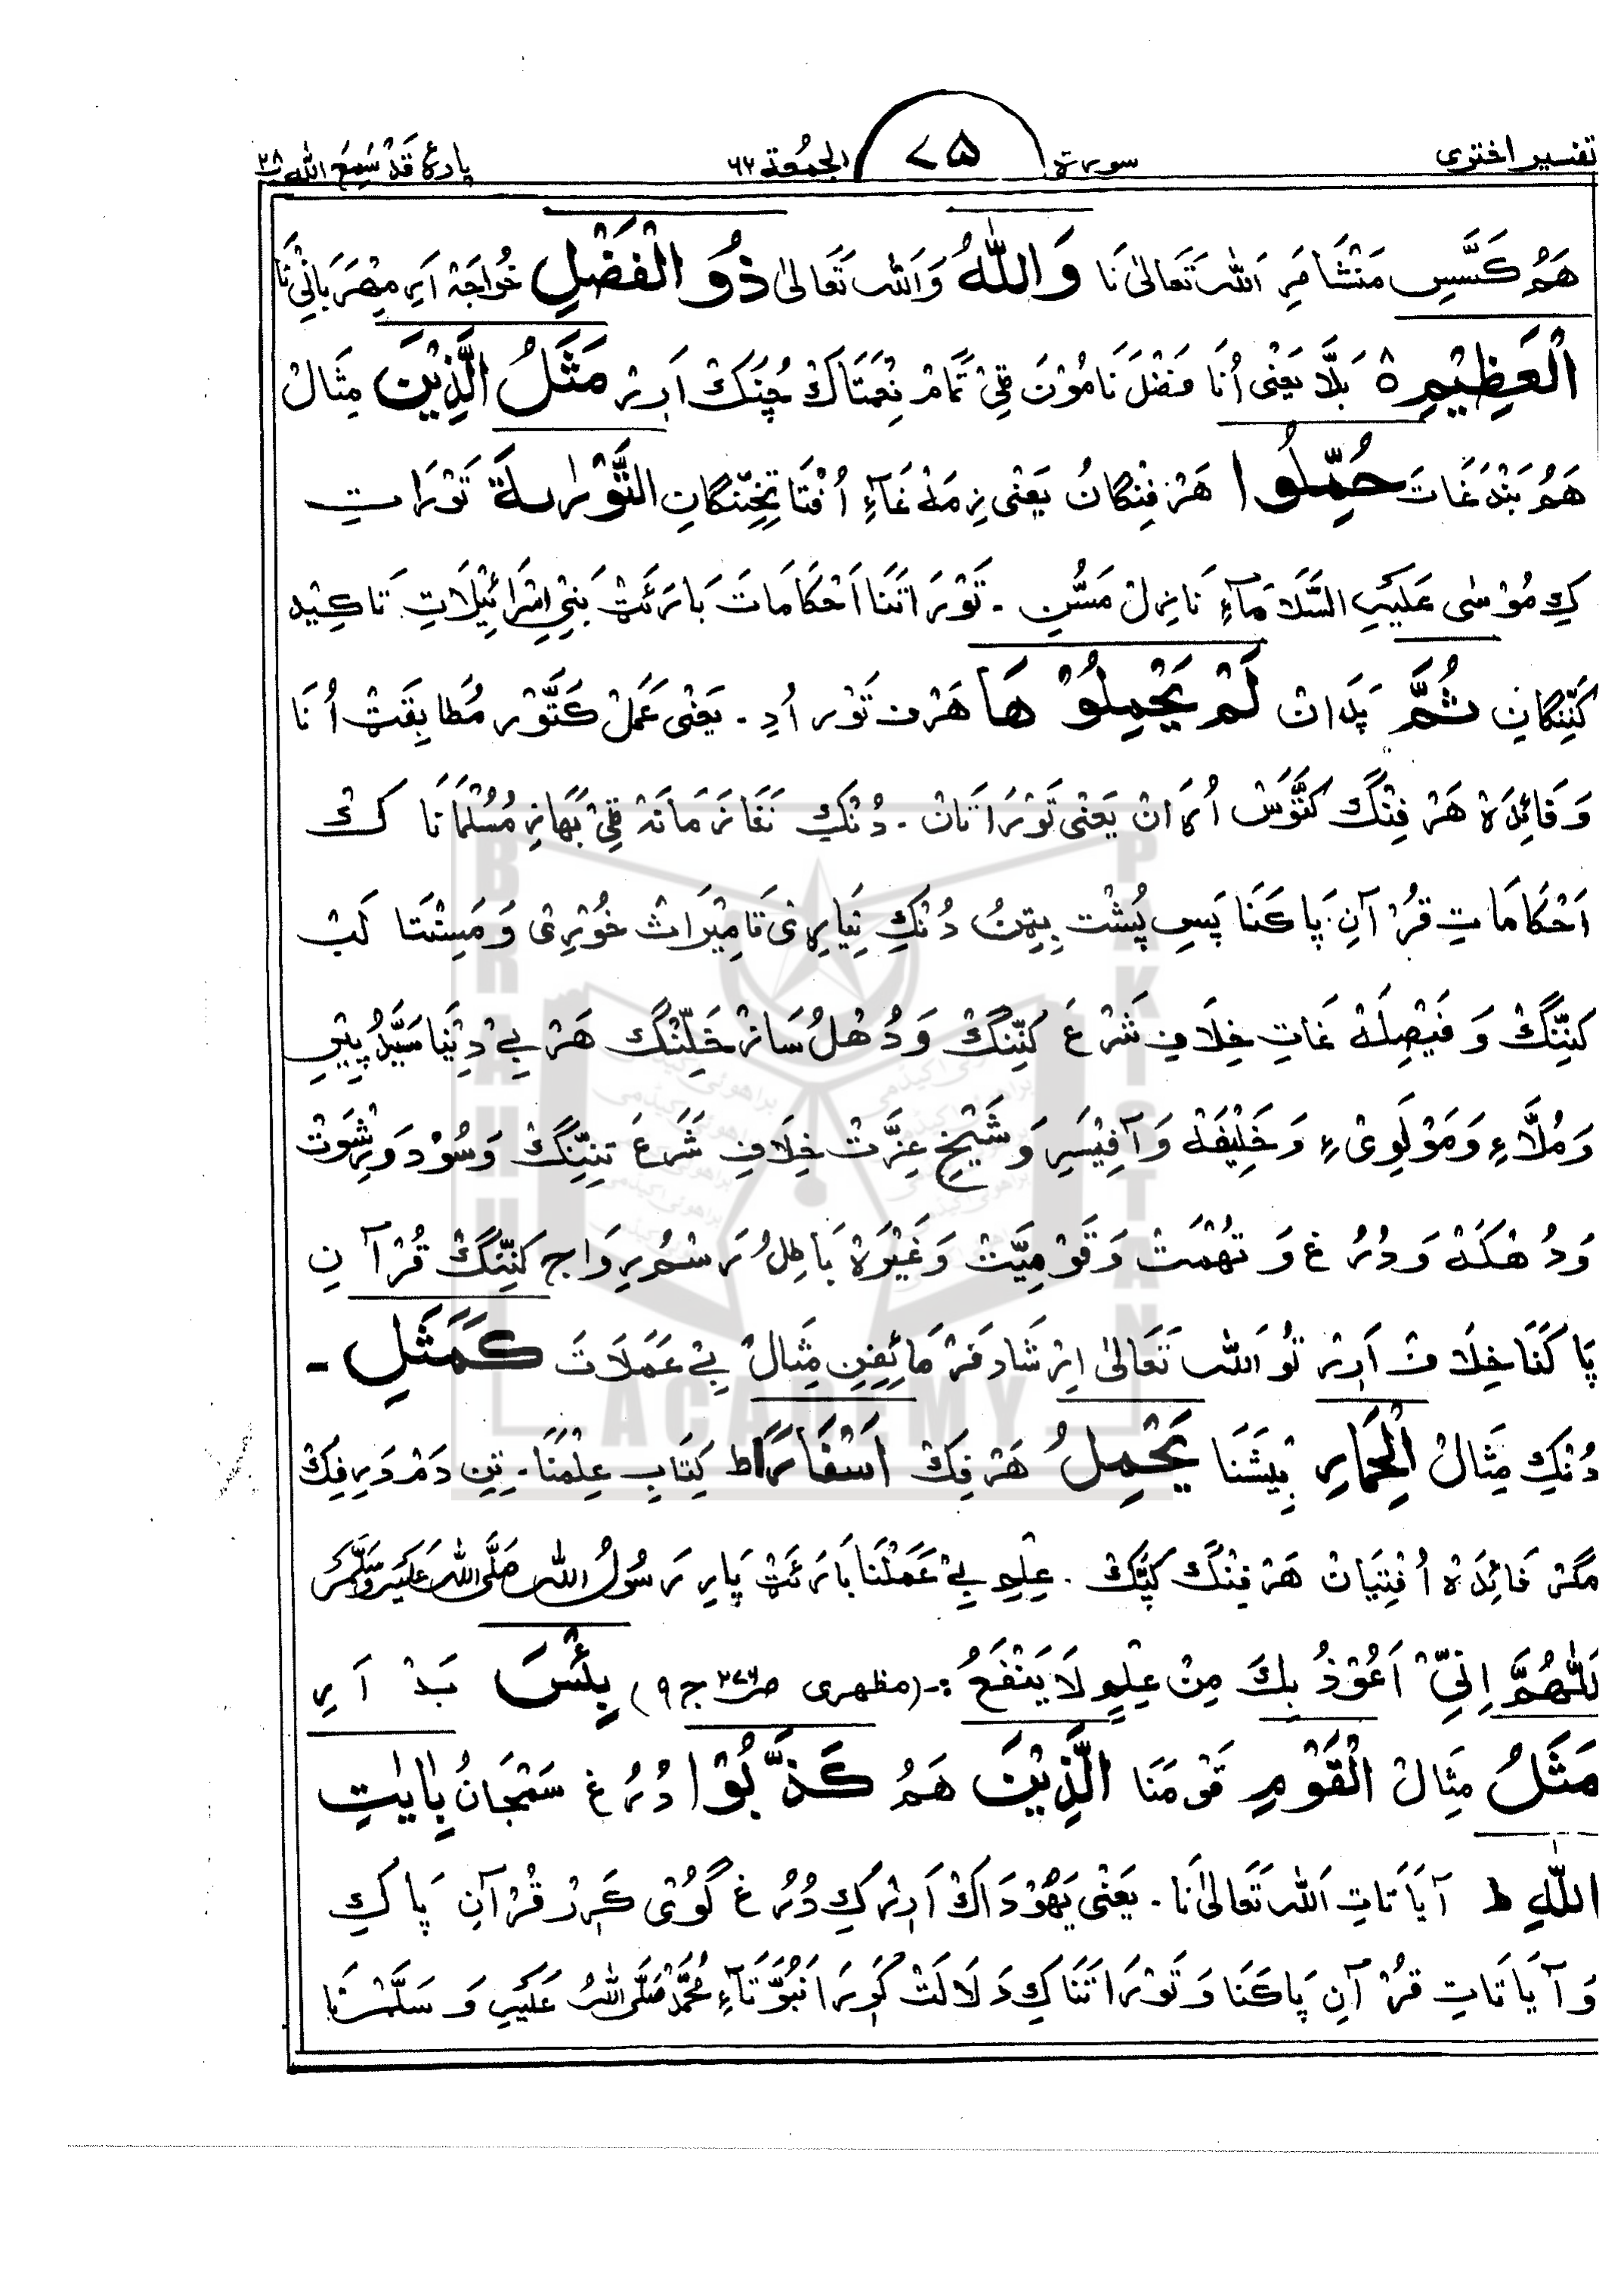 تفسير اختری سورة ٧٥ الجمُعة ٦٢ پارهٔ قَدْ سَمِعَ اللّٰه ٢٨
هَمُ كَسَّسِ مَنْشَا مَرِ اَللّٰه تَعَالیٰ نَا وَاللّٰهُ وَاَللّٰه تَعَالیٰ ذُو الْفَضْلِ خُواجَہْ اَرِ مِہْرَبَانِیْ نَا
الْعَظِيْمِ ٥ بَلَّا يَعْنِی اُنَا فَضْلَ نَامُوْنَ قِیْ تَمَامْ نِعْمَتَاكْ چُنَكْ اَرِرْ مَثَلُ الَّذِيْنَ مِثَالْ
هَمُ بَنْدَغَاتَ حُمِّلُوا هَرْفِنگانُ يَعْنِی ذِمَہْ غَآءِ اُفْتَا تِخِنْگانِ التَّوْرٰىةَ تَوْرَاتِ
كِ مُوْسٰی عَلَيْہِ السَّلَامَآءِ نَازِلْ مَسُّنِ - تَوْرَاتَنَا اَحْكَامَاتَ بَارَئَٹْ بَنِیْ اِسْرَائِيْلَاتِ تَاكِيْد
كَنِّنگانِ ثُمَّ پَدَانْ لَمْ يَحْمِلُوْ هَا هَرْفْ تَوْر اُدِ - يَعْنِی عَمَلْ كَتَّوْر مُطَابِقَتْ اُنَا
وَفَائِدَهْ هَرْفِنْگ كَتَّوْسْ اُرَانْ يَعْنِی تَوْرَاتَانْ - دُنْكِ نَفَا زَمَانَہْ قِیْ بَهَازِ مُسْلْمَانَا ک
اَحْكَامَاتِ قُرْآنِ پَاكَنَا پَسِ پُشْت بِيْتِنُ دُنْكِ نِيَارِیْ تَا مِيْرَاثْ خُوْرِیْ وَمَسِنْتَا لَبْ
كَنِّنْگْ وَفَيْصِلَہْ غَاتِ خِلَافِ شَرْعَ كَنِّنگْ وَدُهْلُ سَازْ خَلِّنْگ هَرْ بے دِيْنَا سَيَّدُ پِيْرِ
وَمُلَّاءِ وَمَوْلَوِیْ ءِ وَخَلِيْفَہْ وَآفِيْسَرِ وَشَيْخِ عِزَّتْ خِلَافِ شَرْعَ تِنِّنگْ وَسُوْد وَرِشْوَتْ
وَدُهْكَہْ وَدُرُغ وَتُهْمَتْ وَقَوْمِيَّتْ وَغَيْرَهْ بَاطِلُ رَسْمِ رِوَاجِ كَنِّنگْ قُرْآنِ
پَاكَنَا خِلَافْ اَرِرْ تُو اَللّٰه تَعَالیٰ اِرْشَاد فَرْمَائِفِنِ مِثَالْ بے عَمَلَاتَ كَمَثَلِ -
دُنْكِ مِثَالْ الْحِمَارِ بِيْشَنَا يَحْمِلُ هَرْفِكْ اَسْفَارًا ط كِتَابِ عِلْمْنَا - تِنِ دَمْدَرِفِكْ
مَگرْ فَائِدَهْ اُفْتِيَانْ هَرْفِنْگ كَپَّكْ - عِلِمِ بے عَمَلْنَا بَارَئَٹْ پَارِ رَسُولُ اللّٰه صَلَّی اللّٰه عَلَيْہِ وَسَلَّمَرْ
اَللّٰهُمَّ اِنِّیْ اَعُوْذُ بِكَ مِنْ عِلْمٍ لَا يَنْفَعُ :- (مظہری ص٢٧٦ ج٩) بِئْسَ بَدْ اَرِ
مَثَلُ مِثَالْ الْقَوْمِ قَوْمَنَا الَّذِيْنَ هَمُ كَذَّبُوْا دُرُغ سَمْجَانُ بِاٰيٰتِ
اللّٰهِ ط آيَاتَاتِ اَللّٰه تَعَالیٰ نَا - يَعْنِی يَهُوْدَاكْ اَرِرْ كِ دُرُغ گوْئی كَرِرْ قُرْآنِ پَاكِ
وَآيَاتَاتِ قُرْآنِ پَاكَنَا وَتَوْرَاتَنَا كِ دَلَالَتْ كَرِرَ اَنَبُوَّتَآءِ مُحَمَّد صَلَّی اللّٰهُ عَلَيْہِ وَسَلَّمْ نَا
BRAHUI ACADEMY PAKISTAN